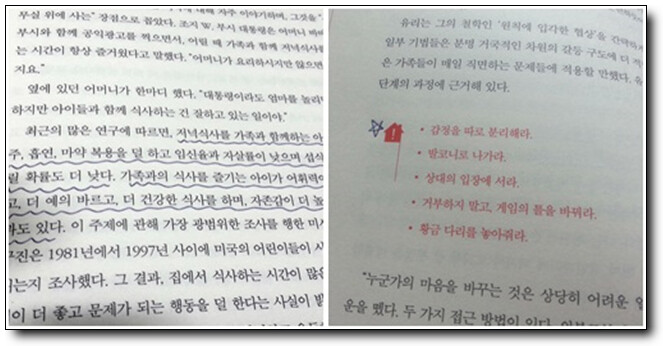 부실 위에 사는" 장점으로 꼽았다. 조지 W. 부시 대통령은 어머니 바버
부시와 함께 공익광고를 찍으면서, 어릴 때 가족과 함께 저녁식사를
는 시간이 항상 즐거웠다고 말했다. "어머니가 요리하시지만 않으면
지요."
옆에 있던 어머니가 한마디 했다. "대통령이라도 엄마를 놀리면
하지만 아이들과 함께 식사하는 건 잘하고 있는 일이야."
최근의 많은 연구에 따르면, 저녁식사를 가족과 함께하는 아
주, 흡연, 마약 복용을 덜 하고 임신율과 자살률이 낮으며 섭식
릴 확률도 더 낮다. 가족과의 식사를 즐기는 아이가 어휘력이
고, 더 예의 바르고, 더 건강한 식사를 하며, 자존감이 더 높
과도 있다. 이 주제에 관해 가장 광범위한 조사를 행한 미시
구진은 1981년에서 1997년 사이에 미국의 어린이들이 시
리는지 조사했다. 그 결과, 집에서 식사하는 시간이 많은
이 더 좋고 문제가 되는 행동을 덜 한다는 사실이 밝
유리는 그의 철학인 '원칙에 입각한 협상'을 간략하게
일부 기법들은 분명 거국적인 차원의 갈등 구도에 더 적
은 가족들이 매일 직면하는 문제들에 적용할 만했다. 유
단계의 과정에 근거해 있다.
• 감정을 따로 분리해라.
• 발코니로 나가라.
• 상대의 입장에 서라.
• 거부하지 말고, 게임의 틀을 바꿔라.
• 황금 다리를 놓아줘라.
"누군가의 마음을 바꾸는 것은 상당히 어려운 일
운을 뗐다. 두 가지 접근 방법이 있다.